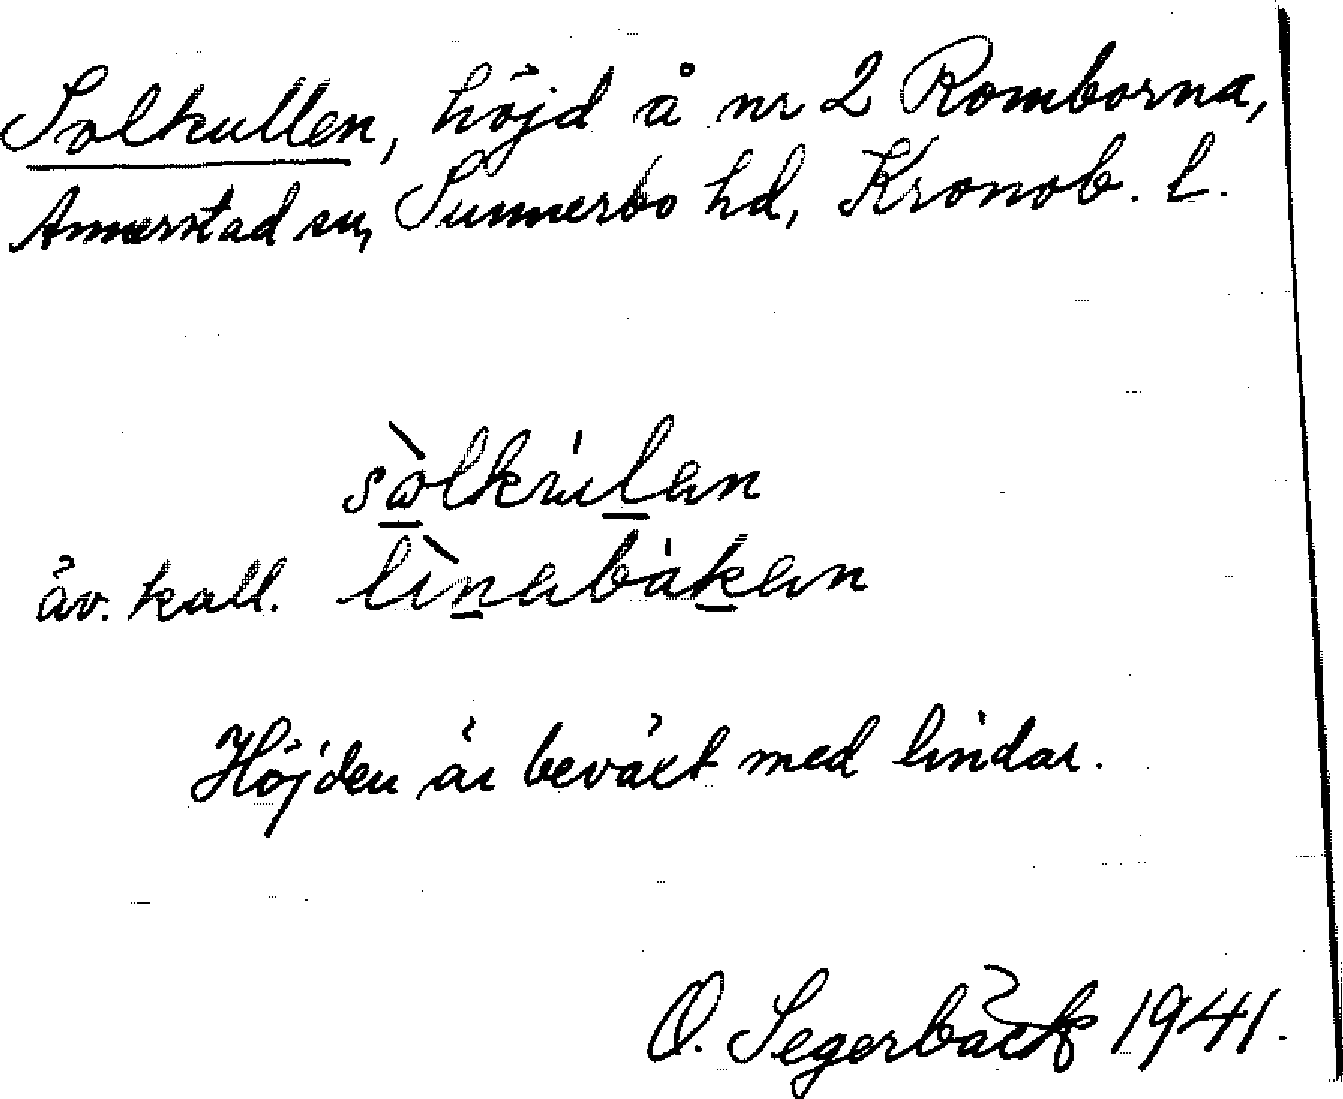 Solkullen, höjd å nr 2 Romborna,
Annerstad sn, Sunnerbo hd, Kronob. l.
sòlkúlan
äv. kall. lìnabákan
Höjden är beväxt med lindar.
O. Segerbäck 1941.